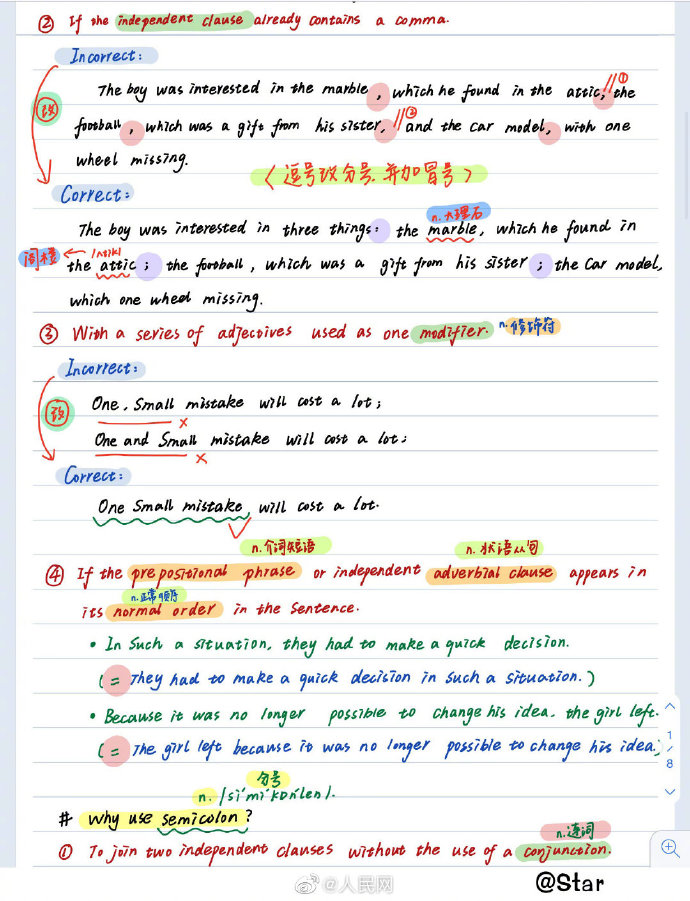 ② If the independent clause already contains a comma.
Incorrect:
改
The boy was interested in the marble, which he found in the attic, the ①
football, which was a gift from his sister, ② and the car model, with one
wheel missing.
〈逗号改分号,并加冒号〉
Correct:
n.大理石
The boy was interested in three things: the marble, which he found in
阁楼 ← /ˈætɪk/
the attic; the football, which was a gift from his sister; the Car model,
which one wheel missing.
③ With a series of adjectives used as one modifier. n.修饰符
Incorrect:
改
One, Small mistake will cost a lot;
×
One and Small mistake will cost a lot;
×
Correct:
One Small mistake, will cost a lot.
n.介词短语 n.状语从句
④ If the prepositional phrase or independent adverbial clause appears in
n.正常顺序
its normal order in the sentence.
• In Such a situation, they had to make a quick decision.
(= They had to make a quick decision in such a situation.)
• Because it was no longer possible to change his idea, the girl left.
(= The girl left because it was no longer possible to change his idea.)
1/8
分号
n. /
# why use semicolon?
n.连词
① To join two independent clauses without the use of a conjunction.
@人民网
@Star